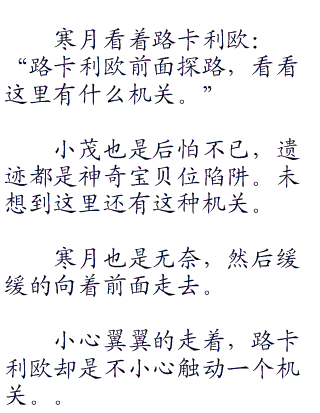 寒月看着路卡利欧：
“路卡利欧前面探路，看看
这里有什么机关。”
小茂也是后怕不已，遗
迹都是神奇宝贝位陷阱。未
想到这里还有这种机关。
寒月也是无奈，然后缓
缓的向着前面走去。
小心翼翼的走着，路卡
利欧却是不小心触动一个机
关。。